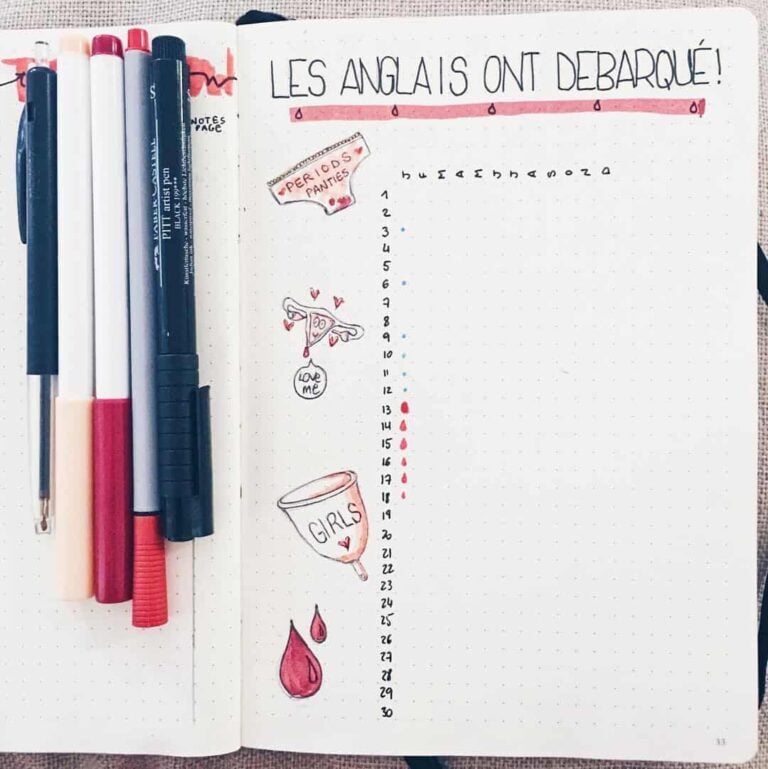 NOTES
PAGE
FABER-CASTELL
PITT artist pen
BLACK 199***
LES ANGLAIS ONT DEBARQUÉ!
PERIODS
PANTIES
J F M A M J J A S O N D
1
2
3
4
5
6
7
8
9
10
11
12
13
14
15
16
17
18
19
20
21
22
23
24
25
26
27
28
29
30
LOVE
ME
GIRLS
33